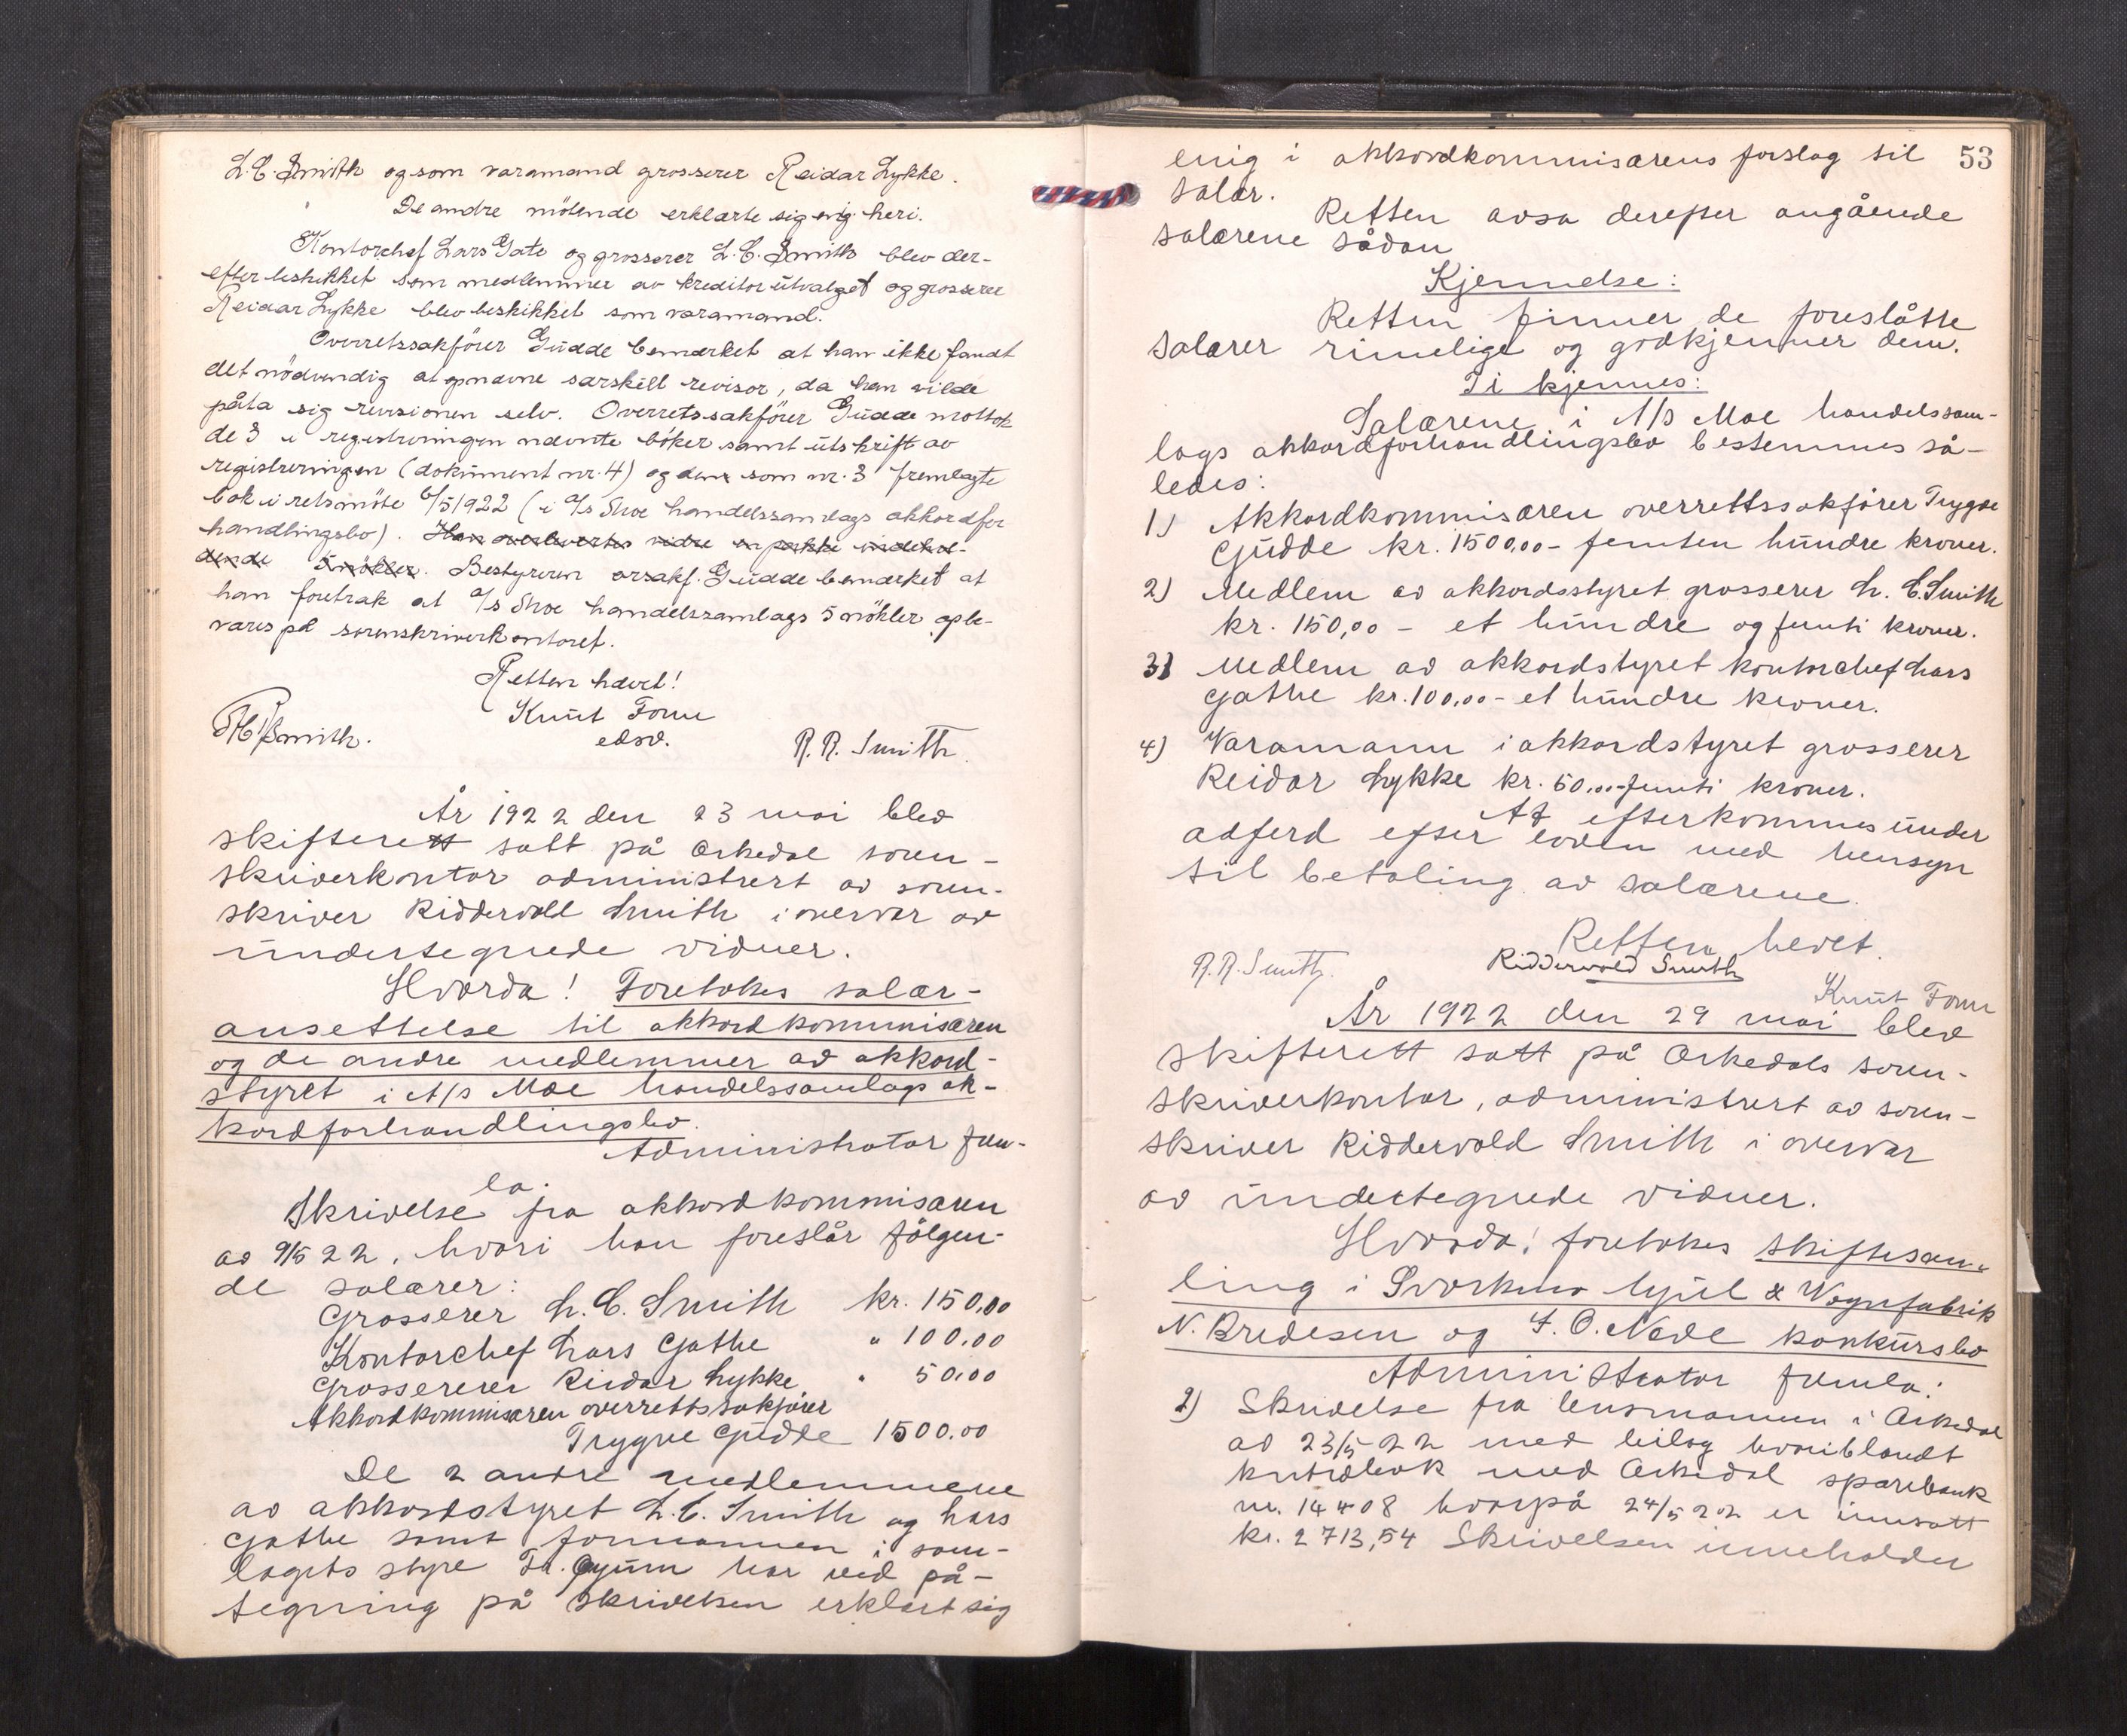 L. C. Smith og som varamand grosserer Reidar Lykke.
De andre mötende erklærte sig enig heri.
Kontorchef Lars Gate og grosserer L. C. Smith blev der-
efter beskikket som medlemmer av kreditorutvalget og grosserer
Reidar Lykke blev beskikket som varamand.
Overretssakförer Gudde bemærket at han ikke fandt
det nödvendig at opnævne særskilt revisor, da han vilde
påta sig revisionen selv. Overretssakförer Gudde mottok
de 3 i registreringen nævnte böker samt utskrift av
registreringen (dokument nr. 4) og den som nr. 3 fremlagte
bok i retsmöte 6/5 1922 (i A/s Moe handelssamlags akkordfor
handlingsbo). Han overleverte vidre en pakke indehol-
dende 5 nökler. Bestyreren orsakf. Gudde bemærket at
han foretrak at A/s Moe handelssamlags 5 nökler opbe-
vares på sorenskriverkontoret.
Retten hævet!
Knut Fonn
edsv.
R. R. Smith.
År 1922 den 23 mai blev
skifterett satt på Orkedal soren-
skriverkontor administrert av soren-
skriver Riddervold Smith i overvær av
undertegnede vidner.
Hvorda! Foretokes salær-
ansettelse til akkordkommisæren
og de andre medlemmer av akkord-
styret i A/s Moe handelssamlags ak-
kordforhandlingsbo.
Administrator frem-
la.
Skrivelse fra akkordkommisæren
av 9/5 22, hvori han foreslår fölgen-
de salærer:
Grosserer L. C. Smith kr. 150,00
Kontorchef Lars Gathe " 100.00
Grossererer Reidar Lykke " 50.00
Akkordkommisæren overrettssakförer
Trygve Gudde 1500.00
De 2 andre medlemmene
av akkordstyret L. C. Smith og Lars
Gathe samt formannen i sam-
lagets styre har ved på-
tegning på skrivelsen erklært sig
53
enig i akkordkommisærens forslag til
salær.
Retten avsa derefter angående
salærene sådan
Kjennelse:
Retten finner de foreslåtte
salærer rimelige og godkjenner dem.
Ti kjennes:
Salærene i A/s Moe handelssam-
lags akkordforhandlingsbo bestemmes så-
ledes:
1) Akkordkommisæren overrettssakförer Trygve
Gudde kr. 1500,00 - femten hundre kroner.
2) Medlem av akkordsstyret grosserer L. C. Smith
kr. 150,00 - et hundre og femti kroner.
3) Medlem av akkordstyret kontorchef Lars
Gathe kr. 100,00 - et hundre kroner.
4) Varamann i akkordstyret grosserer
Reidar Lykke kr. 50,00 - femti kroner.
At efterkommes under
adferd efter loven med hensyn
til betaling av salærene.
Retten hevet.
R. R. Smith. Riddervold Smith
Knut Fonn
År 1922 den 29 mai blev
skifterett satt på Orkedals soren-
skriverkontor, administrert av soren-
skriver Riddervold Smith i overvær
av undertegnede vidner.
Hvorda! foretokes skiftesam-
ling i Svorkmo hjul & Vognfabrik
N. Bredesen og konkursbo
Administrator fremla:
2) Skrivelse fra lensmannen i Orkedal
av 23/5 22 med bilag hvoriblandt
kontrabok med Orkedal sparebank
nr. 14408 hvorpå 24/5 22 er innsatt
kr. 2713,54 Skrivelsen inneholder